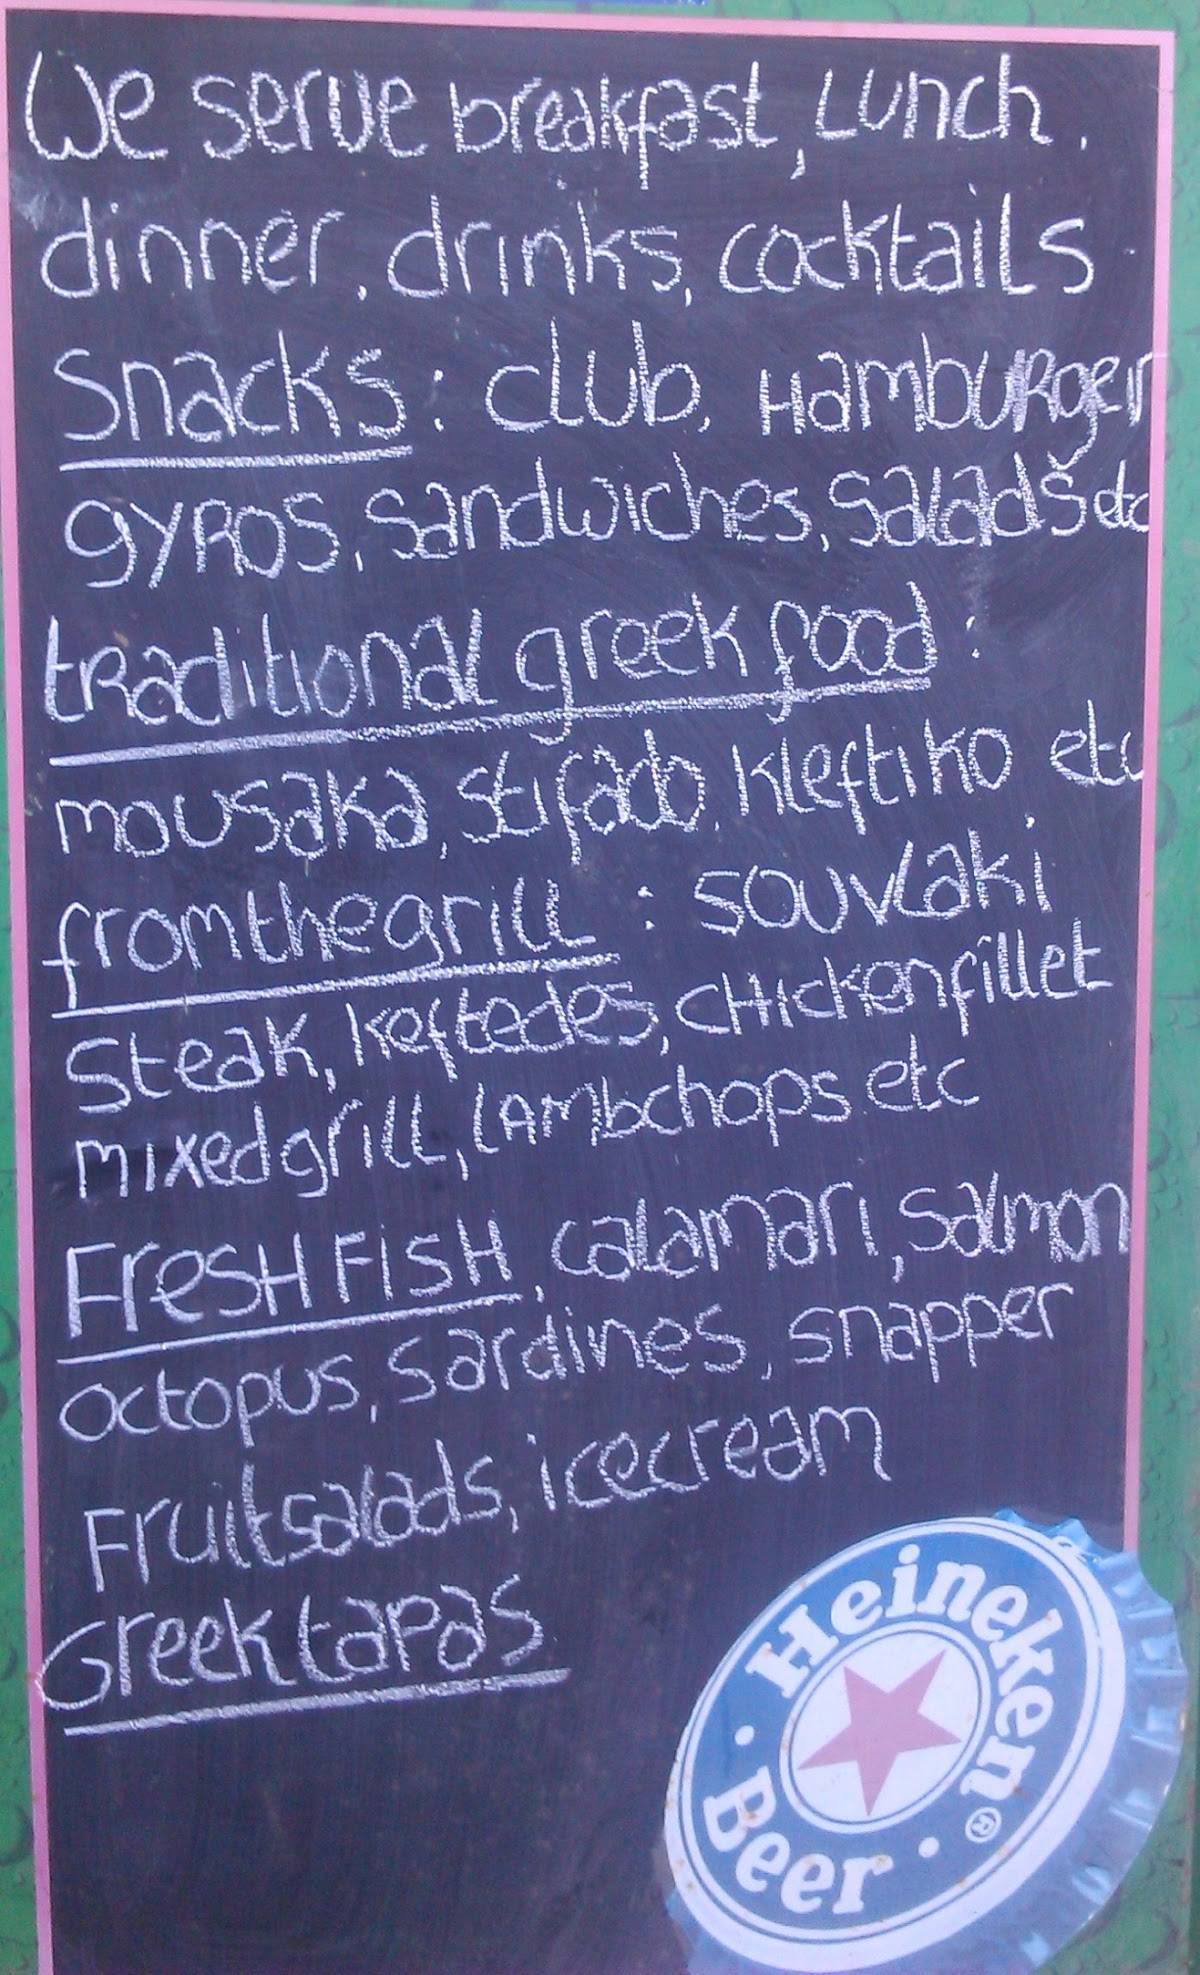 We serve breakfast, Lunch,
dinner, drinks, cocktails
Snacks: club, Hamburger
gyros, sandwiches, salads etc
traditional greek food:
mousaka, stifado, kleftiko etc
from the grill: souvlaki
steak, keftedes, CHickenfillet
mixedgrill, LAMbchops etc
FresH FisH, calamari, salmon
octopus, sardines, snapper
Fruitsalads, icecream
Greek tapas
Heineken®
Beer